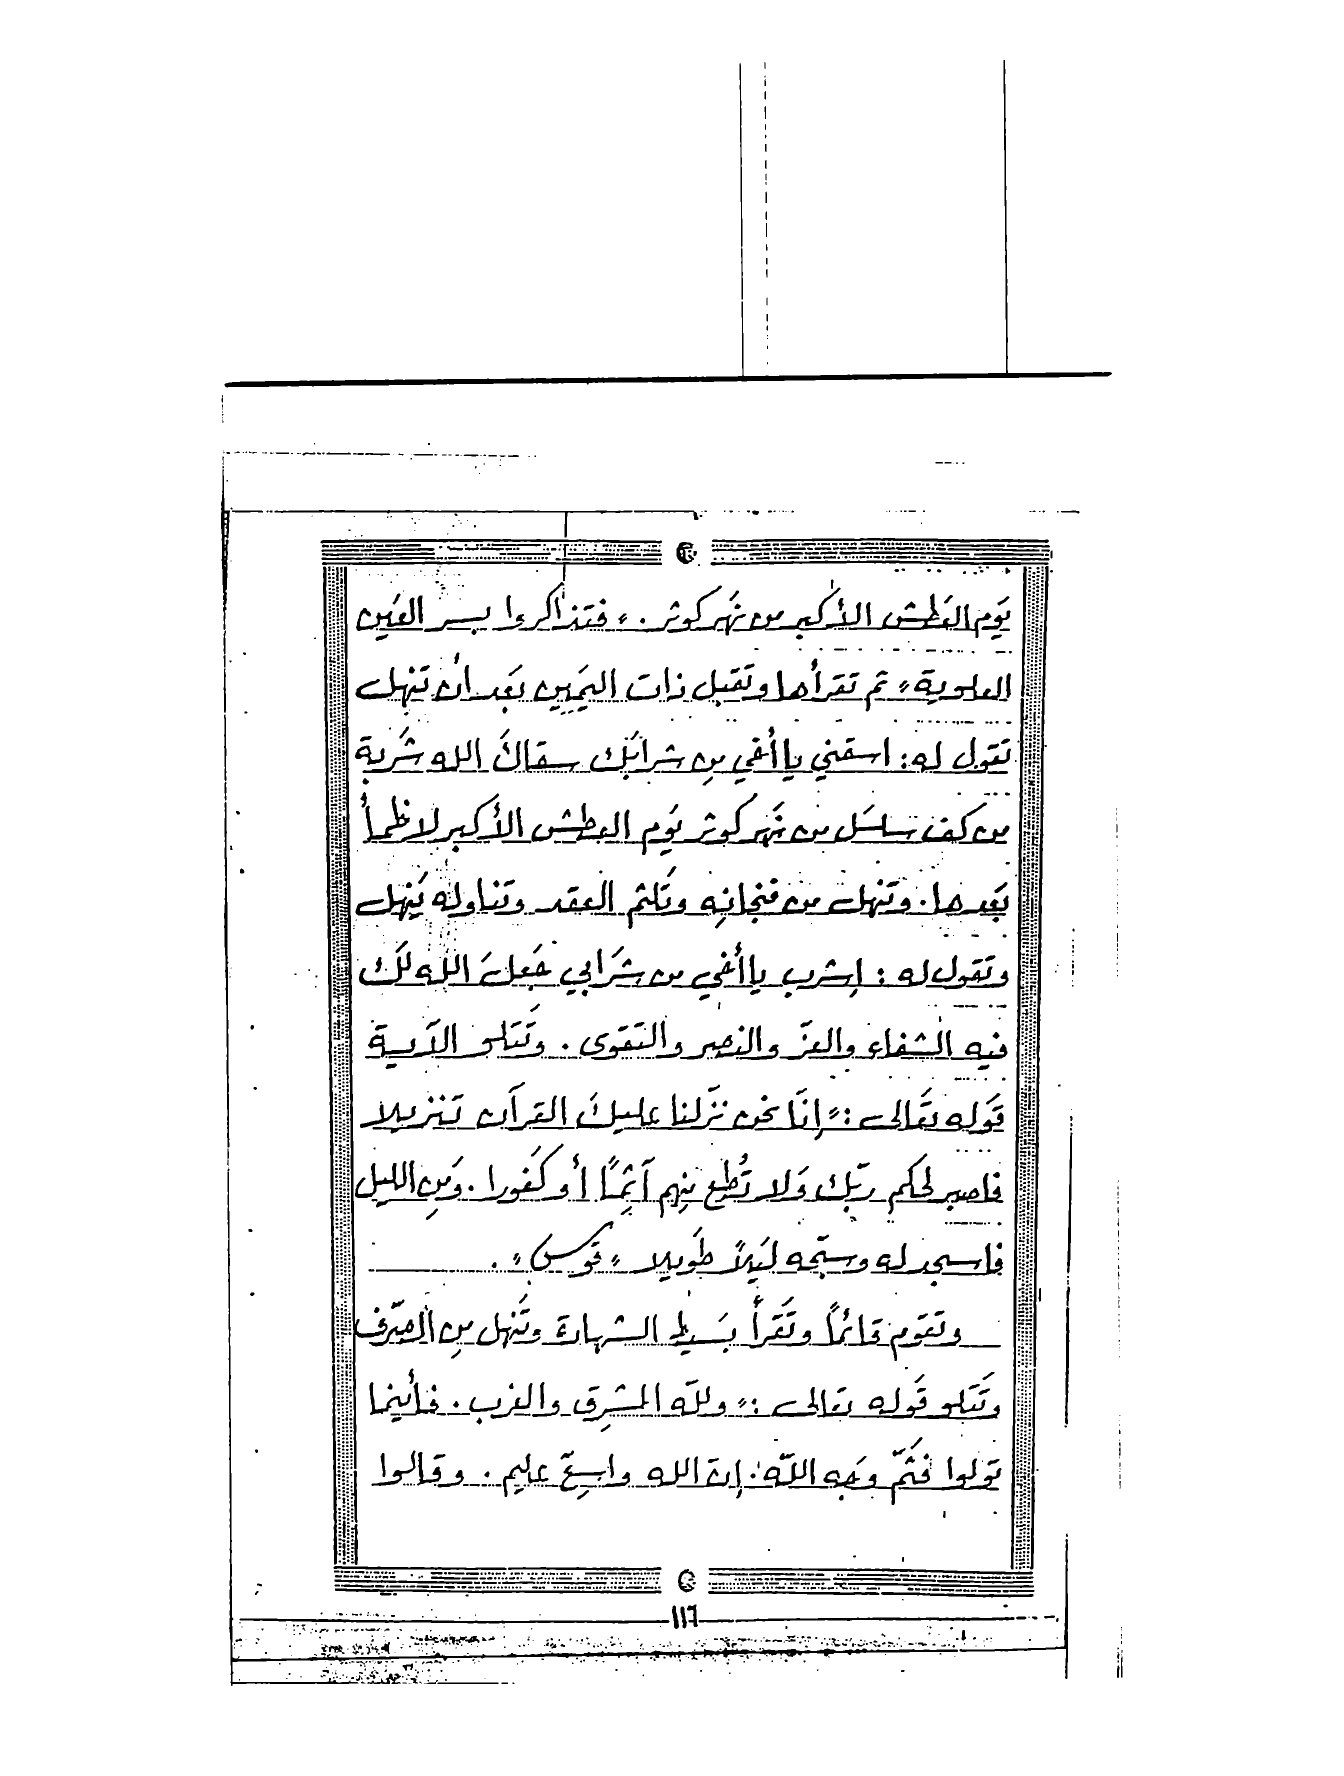 يَوم العَطش الأكبر من نَهر كوثر . » فتذاكروا بسر العَين
العلوية » ثم تقرأها وتقبل ذات اليَمين بَعد أن تَنهل
تقول له : اسقني يا أخي مِن شرابَك سقاكَ الله شَربة
من كف سلسَل من نَهر كوثر يَوم العطش الأكبر لا ظمأ
بَعدها . وتَنهل من فنجانِه وتَلثم العقد وتناوله يَنهل
وتَقول له : إشرب يا أخي من شَرابي جَعلَ الله لَك
فيه الشفاء والعزّ والنصر والتقوى . وتَتلو الآية
قَوله تعَالى : » إنَا نحن نزّلنا عليكَ القرآن تنزيلا
فاصبر لحكم ربّك وَلا تُطع مِنهم آثِماً أو كَفورا . وَمِن الليل
فاسجد له وسبّحه لَيلاً طَويلا » قوس » .
وتقوم قائماً وتَقرأ بسَيط الشهادة وتَنهل مِن الصِرّف
وتَتلو قَوله تعالى : » وللّه المشرِق والغرب . فأينما
تولوا فثَمّ وجَه اللّه . إن الله واسِعّ عليم . وقالوا
١١٦